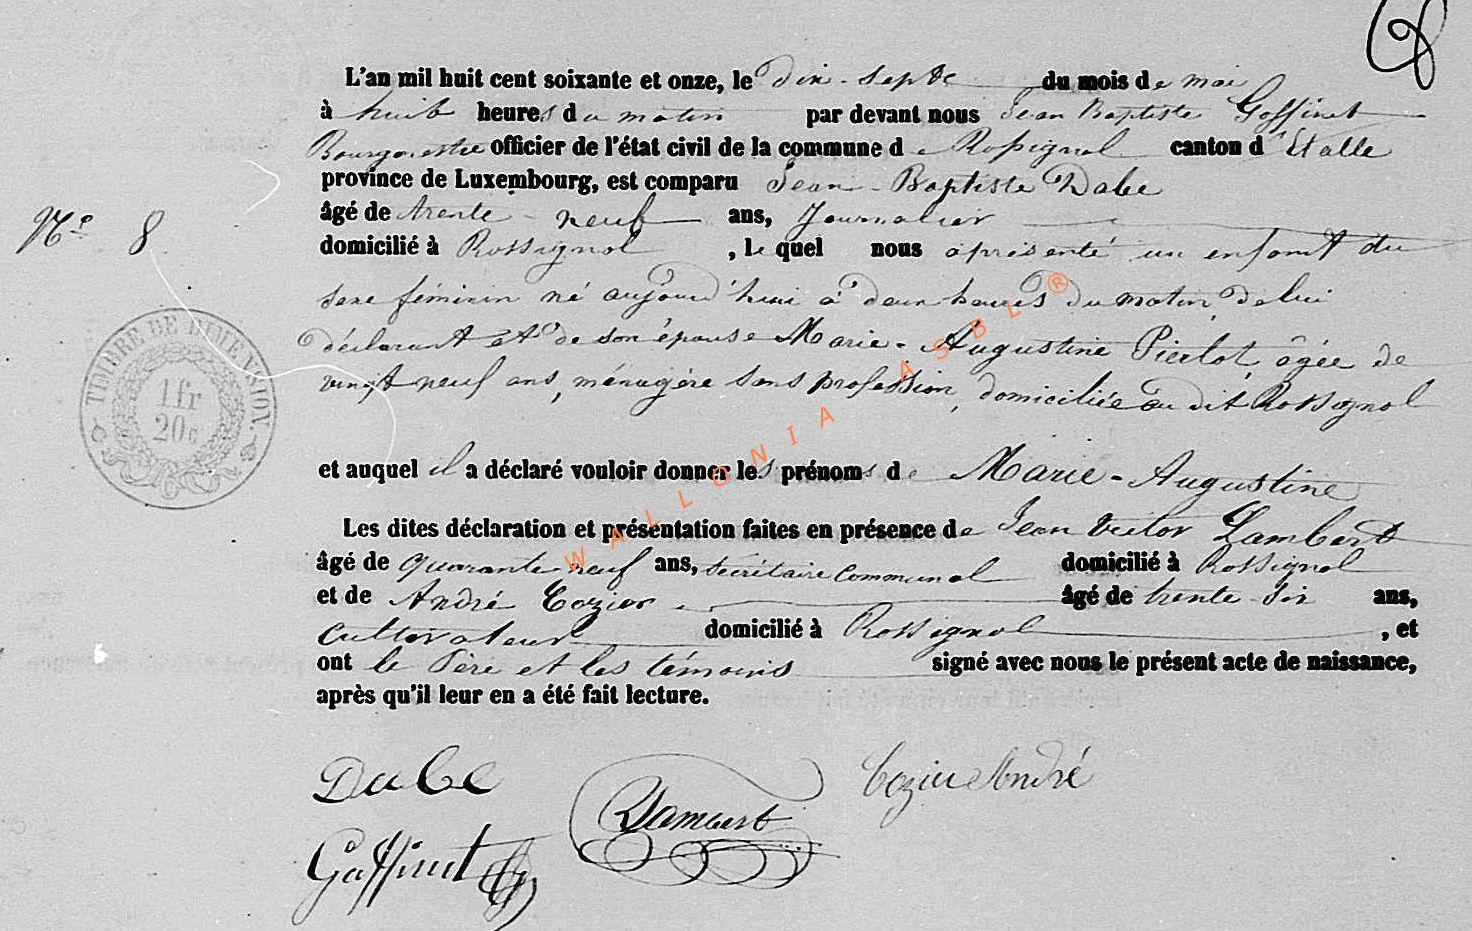 L'an mil huit cent soixante et onze, le dix-sept du mois de mai
à huit heures du matin par devant nous Jean Baptiste Goffinet
Bourgmestre officier de l'état civil de la commune de Rossignol canton d'Etalle
province de Luxembourg, est comparu Jean-Baptiste Dabe
N° 8
âgé de trente-neuf ans, Journalier
domicilié à Rossignol, le quel nous a présenté un enfant du
sexe féminin né aujourd'hui à deux heures du matin, de lui
déclarant et de son épouse Marie-Augustine Pierlot, âgée de
vingt neuf ans, ménagère sans profession, domiciliée au dit Rossignol
TIMBRE DE DIMENSION.
1 fr
20 c
et auquel il a déclaré vouloir donner les prénoms de Marie-Augustine
Les dites déclaration et présentation faites en présence de Jean Victor Lambert
âgé de quarante-neuf ans, Secrétaire Communal domicilié à Rossignol
et de André Cozier âgé de trente-six ans,
Cultivateur domicilié à Rossignol, et
ont le Père et les témoins signé avec nous le présent acte de naissance,
après qu'il leur en a été fait lecture.
Dabe
Lambert
André
Goffinet
WALLONIA ASBL ®